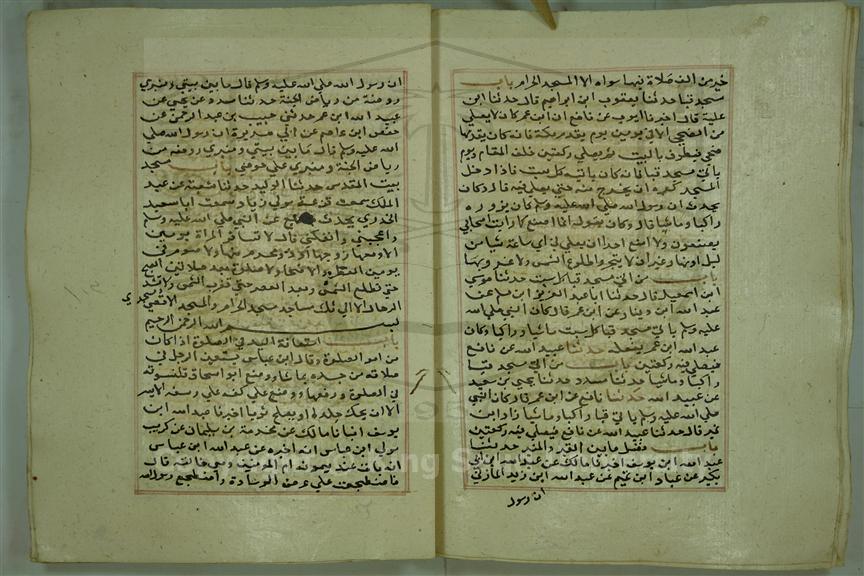 خير من الف صلاة فيما سواه الا المسجد الحرام باب
مسجد قبا حدثنا يعقوب ابن ابراهيم قال حدثنا ابن
علية قال اخبرنا ايوب عن نافع ان ابن عمر كان لا يصلي
من الضحي الا في يومين يوم يقدم مكة فانه كان يقدمها
ضحي فيطوف بالبيت ثم يصلي ركعتين خلف المقام ويوم
ياتي مسجد قبا فانه كان ياتيه كل سبت فاذا دخل
المسجد كره ان يخرج منه حتي يصلي فيه قال وكان
يحدث ان رسول الله صلي الله عليه وسلم كان يزوره
راكبا وماشيا قال وكان يقول انما اصنع كما رايت اصحابي
يصنعون ولا امنع احدا ان يصلي في اي ساعة شا من
ليل او نهار غير ان لا يتحروا طلوع الشمس ولا غروبها
باب من اتي مسجد قبا كل سبت حدثنا موسي
ابن اسمعيل قال حدثنا عبد العزيز ابن مسلم عن
عبد الله ابن دينار عن ابن عمر قال كان النبي صلي الله
عليه وسلم ياتي مسجد قبا كل سبت ماشيا وراكبا وكان
عبد الله ابن عمر يفعله حدثنا عبيد الله عن نافع
فيصلي فيه ركعتين باب من اتي مسجد قبا
راكبا وماشيا حدثنا مسدد حدثنا يحيي بن سعيد
عن عبيد الله حدثنا نافع عن ابن عمر قال كان النبي
صلي الله عليه وسلم ياتي قبا راكبا وماشيا زاد ابن
نمير قال حدثنا عبيد الله عن نافع فيصلي فيه ركعتين
باب فضل ما بين القبر والمنبر حدثنا
عبد الله ابن يوسف اخبرنا مالك عن عبد الله ابن ابي
بكر عن عباد ابن تميم عن عبد الله ابن زيد المازني
ان رسول
ان رسول الله صلي الله عليه وسلم قال ما بين بيتي ومنبري
روضة من رياض الجنة حدثنا مسدد عن يحيي عن
عبيد الله ابن عمر حدثني خبيب بن عبد الرحمن عن
حفص ابن عاصم عن ابي هريرة ان رسول الله صلي
الله عليه وسلم قال ما بين بيتي ومنبري روضة من
رياض الجنة ومنبري علي حوضي باب مسجد
بيت المقدس حدثنا ابو الوليد حدثنا شعبة عن عبد
الملك سمعت قزعة مولي زياد سمعت ابا سعيد
الخدري يحدث باربع عن النبي صلي الله عليه وسلم
فاعجبني وانقنني قال لا تسافر المراة يومين
الا ومعها زوجها او ذو محرم منها ولا صوم في
يومين الفطر والاضحي ولا صلاة بعد صلاتين الصبح
حتي تطلع الشمس وبعد العصر حتي تغرب الشمس ولا تشد
الرحال الا الي ثلاث مساجد مسجد الحرام والمسجد الاقصي ومسجدي
بسم الله الرحمن الرحيم
باب استعانة اليد في الصلوة اذا كان
من امر الصلوة وقال ابن عباس يستعين الرجل في
صلاته من جسده بما شا ووضع ابو اسحاق قلنسوته
في الصلوة ورفعها ووضع علي كفه علي رسغه الايسر
الا ان يحك جلدا او يصلح ثوبا اخبرنا عبد الله ابن
يوسف انبانا مالك عن مخرمة بن سليمان عن كريب
مولي ابن عباس انه اخبره عن عبد الله ابن عباس
انه بات عند ميمونه ام المومنين وهي خالته قال
فاضطجعت علي عرض الوسادة واضطجع رسول الله